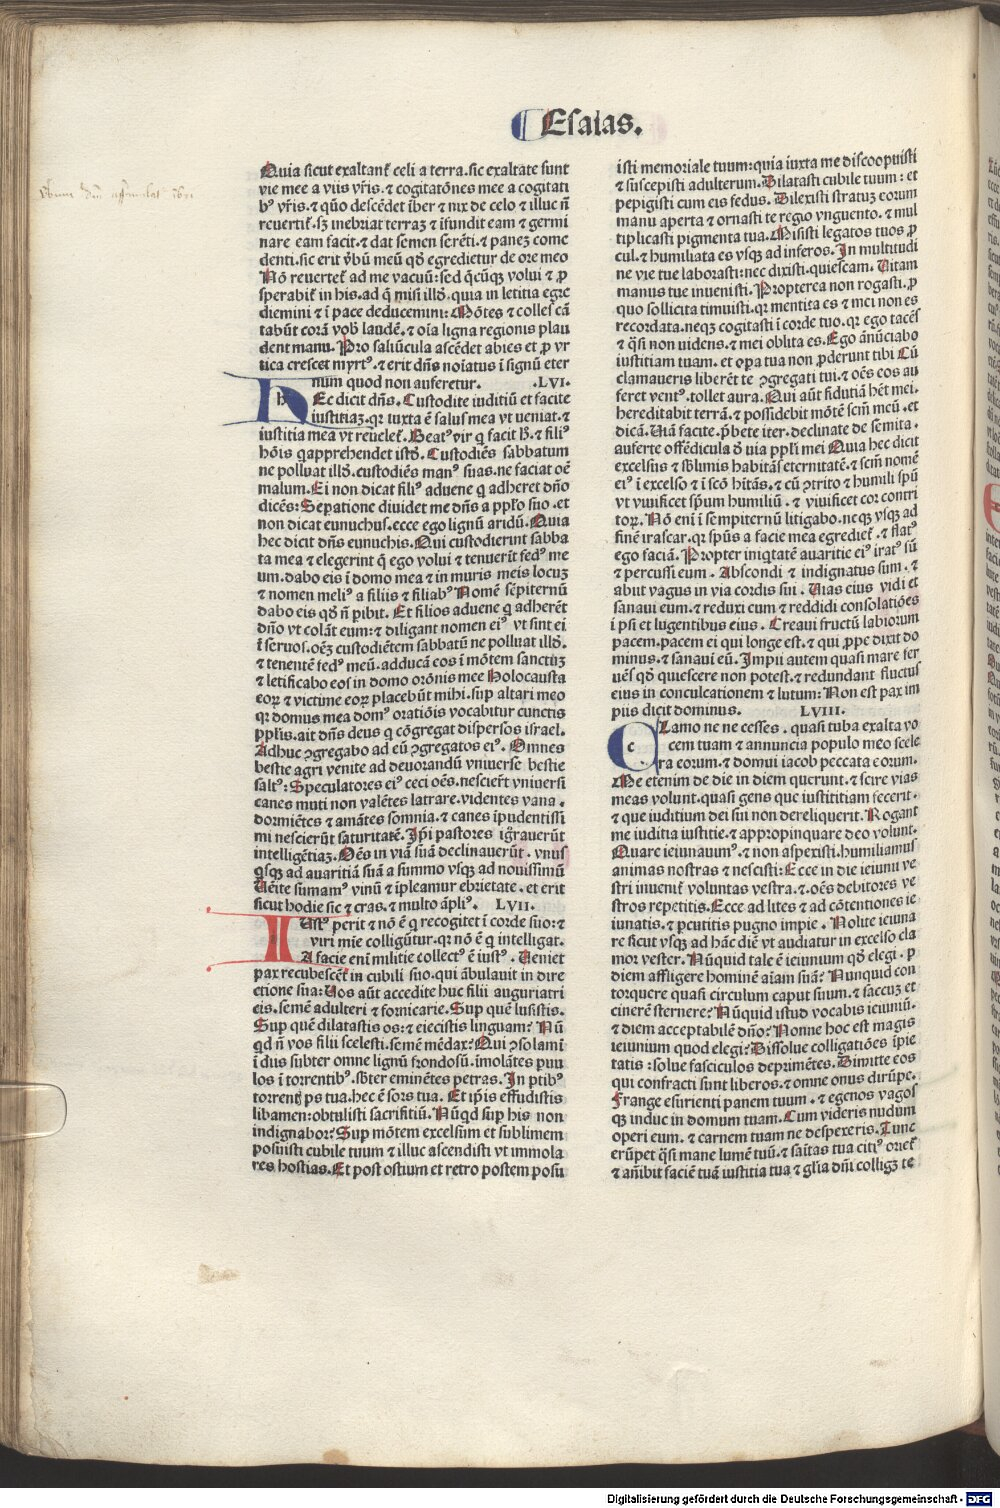 Esaias.
Quia sicut exaltant᷑ celi a terra.sic exaltate sunt
vie mee a viis vr̃is.⁊ cogitatōnes mee a cogitati
bꝰ vr̃is.⁊ quō descēdet īber ⁊ nix de celo ⁊ illuc ñ
reuertit᷑.sꝫ inebriat terraꝫ ⁊ īfundit eam ⁊ germi
nare eam facit.⁊ dat semen serēti.⁊ paneꝫ come
denti.sic erit v̄bū meū qđ egredietur de ore meo
Nō reuertet᷑ ad me vacuū:sed q̄cūqꝫ volui ⁊ ꝓ
sperabit᷑ in his.ad q̄ misi illđ.quia in letitia egre
diemini ⁊ ī pace deducemini:Mōtes ⁊ colles cā
tabūt corā vob̄ laudē.⁊ oīa ligna regionis plau
dent manu. Pro saliūcula ascēdet abies et ꝓ vr
tica crescet myrtꝰ.⁊ erit dñs noīatus ī signū eter
num quod non auferetur. .LVI.
HEc dicit dñs. Custodite iuditiū et facite
iustitiaꝫ.qꝛ iuxta ē salus mea vt ueniat.⁊
iustitia mea vt reuelet᷑.Beatꝰ vir q facit ħ.⁊ filiꝰ
hōis q apprehendet istđ. Custodiēs sabbatum
ne polluat illđ.custodiēs manꝰ suas.ne faciat oē
malum.Et non dicat filiꝰ aduene q adheret dño
dicēs:Sepatione diuidet me dñs a pplo suo .et
non dicat eunuchus.ecce ego lignū aridū.Quia
hec dicit dñs eunuchis.Qui custodierint sabba
ta mea ⁊ elegerint q̄ ego volui ⁊ tenuerīt fedꝰ me
um.dabo eis ī domo mea ⁊ in muris meis locuꝫ
⁊ nomen meliꝰ a filiis ⁊ filiabꝰ Nomē sēpiternū
dabo eis qđ ñ pibit. Et filios aduene q adherēt
dño vt colāt eum:⁊ diligant nomen eiꝰ vt sint ei
ī seruos.oēꝫ custodiētem sabbatū ne polluat illđ.
⁊ tenentē fedꝰ meū.adducā eos ī mōtem sanctūꝫ
⁊ letificabo eos in domo orōnis mee Holocausta
eoꝝ ⁊ victime eoꝝ placebūt mihi.sup altari meo
qꝛ domus mea domꝰ oratiōis vocabitur cunctis
pplis.ait dñs deus q cōgregat dispersos israel.
Adhuc ꝯgregabo ad eū ꝯgregatos eiꝰ. Omnes
bestie agri venite ad deuorandū vniuerse bestie
saltꝰ:Speculatores eiꝰ ceci oēs.nescier̄t vniuersi
canes muti non valētes latrare.videntes vana .
dormiētes ⁊ amātes somnia.⁊ canes īpudentissi
mi nescierūt saturitatē.Ip̄i pastores ignorauerūt
intelligētiaꝫ.Oēs in viā suā declinauerūt. vnus
qsqꝫ ad auaritiā suā a summo vsqꝫ ad nouissimū
Uēite sumamꝰ vinū ⁊ īpleamur ebrietate.et erit
sicut hodie sic ⁊ cras.⁊ multo āpliꝰ. LVII.
IUstꝰ perit ⁊ nō ē q recogitet ī corde suo:⁊
viri mīe colligūtur.qꝛ nō ē q intelligat.
A facie enī militie collectꝰ ē iustꝰ. Ueniet
pax recubescēt in cubili suo.qui ābulauit in dire
ctione sua:Uos aūt accedite huc filii auguriatri
cis.semē adulteri ⁊ fornicarie.Sup quē lusistis.
Sup quē dilatastis os:⁊ eiecistis linguam? Nū
qd ñ vos filii scelesti.semē mēdax? Qui ꝯsolami
ī dus subter omne lignū frondosū.imolātes paru
los ī torrentibꝰ.sb̄ter eminētes petras.In ptibꝰ
torrentis ps tua.hec ē sors tua. Et ip̄is effudistis
libamen:obtulisti sacrifitiū.Nūqd sup his non
indignabor?Sup mōtem excelsum et sublimem
posuisti cubile tuum ⁊ illuc ascendisti vt immola
res hostias.Et post ostium et retro postem posu
isti memoriale tuum:quia iuxta me discoopuisti
⁊ suscepisti adulterum.Dilatasti cubile tuum: et
pepigisti cum eis fedus. Dilexisti stratuꝫ eorum
manu aperta ⁊ ornasti te regio vnguento.⁊ mul
tiplicasti pigmenta tua.Misisti legatos tuos ꝓ
cul.⁊ humiliata es vsqꝫ ad inferos.In multitudi
ne vie tue laborasti:nec dixisti.quiescam. Uitam
manus tue inuenisti.Propterea non rogasti.ꝓ
quo sollicita timuisti.qꝛ mentita es ⁊ mei non es
recordata.neqꝫ cogitasti ī corde tuo.qꝛ ego tacēs
⁊ q̄si non uidens.⁊ mei oblita es.Ego ānūciabo
iustitiam tuam. et opa tua non ꝓderunt tibi Cū
clamaueris liberēt te ꝯgregati tui.⁊ oēs eos au
feret ventꝰ.tollet aura.Qui aūt fidutiā hēt mei.
hereditabit terrā.⁊ possidebit mōtē scm̄ meū.et
dicā.Uiā facite.p̄bete iter.declinate de semita.
auferte offēdicula đ uia ppli mei Quia hec dicit
excelsus ⁊ sb̄limis habitās eternitatē.⁊ scm̄ nomē
eiꝰ ī excelso ⁊ ī scō hitās.⁊ cū ꝯtrito ⁊ humili spū
vt viuificet sp̄um humiliū. ⁊ viuificet cor contri
toꝝ.Nō eni ī sempiternū litigabo.neqꝫ vsqꝫ ad
finē irascar.qꝛ sp̄us a facie mea egrediet᷑.⁊ flatꝰ
ego faciā.Propter iniqtatē auaritie eiꝰ iratꝰ sū
⁊ percussi eum. Abscondi ⁊ indignatus sum.⁊
abiit vagus in via cordis sui. Uias eius vidi et
sanaui eum.⁊ reduxi eum ⁊ reddidi consolatiōes
i psi et lugentibus eius. Creaui fructū labiorum
pacem.pacem ei qui longe est.⁊ qui ꝓpe dixit do
minus.⁊ sanaui eū.Impii autem quasi mare fer
uēs qđ quiescere non potest.⁊ redundant fluctus
eius in conculcationem ⁊ lutum: Non est pax im
piis dicit dominus. LVIII.
CLamo ne ne cesses. quasi tuba exalta vo
cem tuam ⁊ annuncia populo meo scele
ra eorum.⁊ domui iacob peccata eorum.
Me etenim de die in diem querunt.⁊ scire vias
meas volunt.quasi gens que iustititiam fecerit.
⁊ que iuditium dei sui non dereliquerit. Rogant
me iuditia iustitie.⁊ appropinquare deo volunt.
Quare ieiunauimꝰ.⁊ non aspexisti.humiliamus
animas nostras ⁊ nescisti:Ecce in die ieiunii ve
stri inuenit᷑ voluntas vestra.⁊ oēs debitores ve
stros repetitis.Ecce ad lites ⁊ ad cōtentiones ie
iunatis.⁊ pcutitis pugno impie. Nolite ieiuna
re sicut vsqꝫ ad hāc diē vt audiatur in excelso cla
mor vester.Nūquid tale ē ieiunium qđ elegi. ꝑ
diem affligere hominē aīam suā? Nunquid con
torquere quasi circulum caput suum.⁊ saccuꝫ et
cinerē sternere? Nūquid istud vocabis ieiuniū.
⁊ diem acceptabilē dño? Nonne hoc est magis
ieiunium quod elegi? Dissolue colligatiōes īpie
tatis:solue fasciculos deprimētes.Dimitte eos
qui confracti sunt liberos.⁊ omne onus dirūpe.
Frange esurienti panem tuum.⁊ egenos vagos
qꝫ induc in domum tuam.Cum videris nudum
operi eum.⁊ carnem tuam ne despexeris.Tunc
erūpet q̄si mane lumē tuū.⁊ saītas tua citiꝰ oriet᷑
⁊ anībit faciē tuā iustitia tua ⁊ glīa dñi colligꝫ te
Digitalisierung gefördert durch die Deutsche Forschungsgemeinschaft - DFG